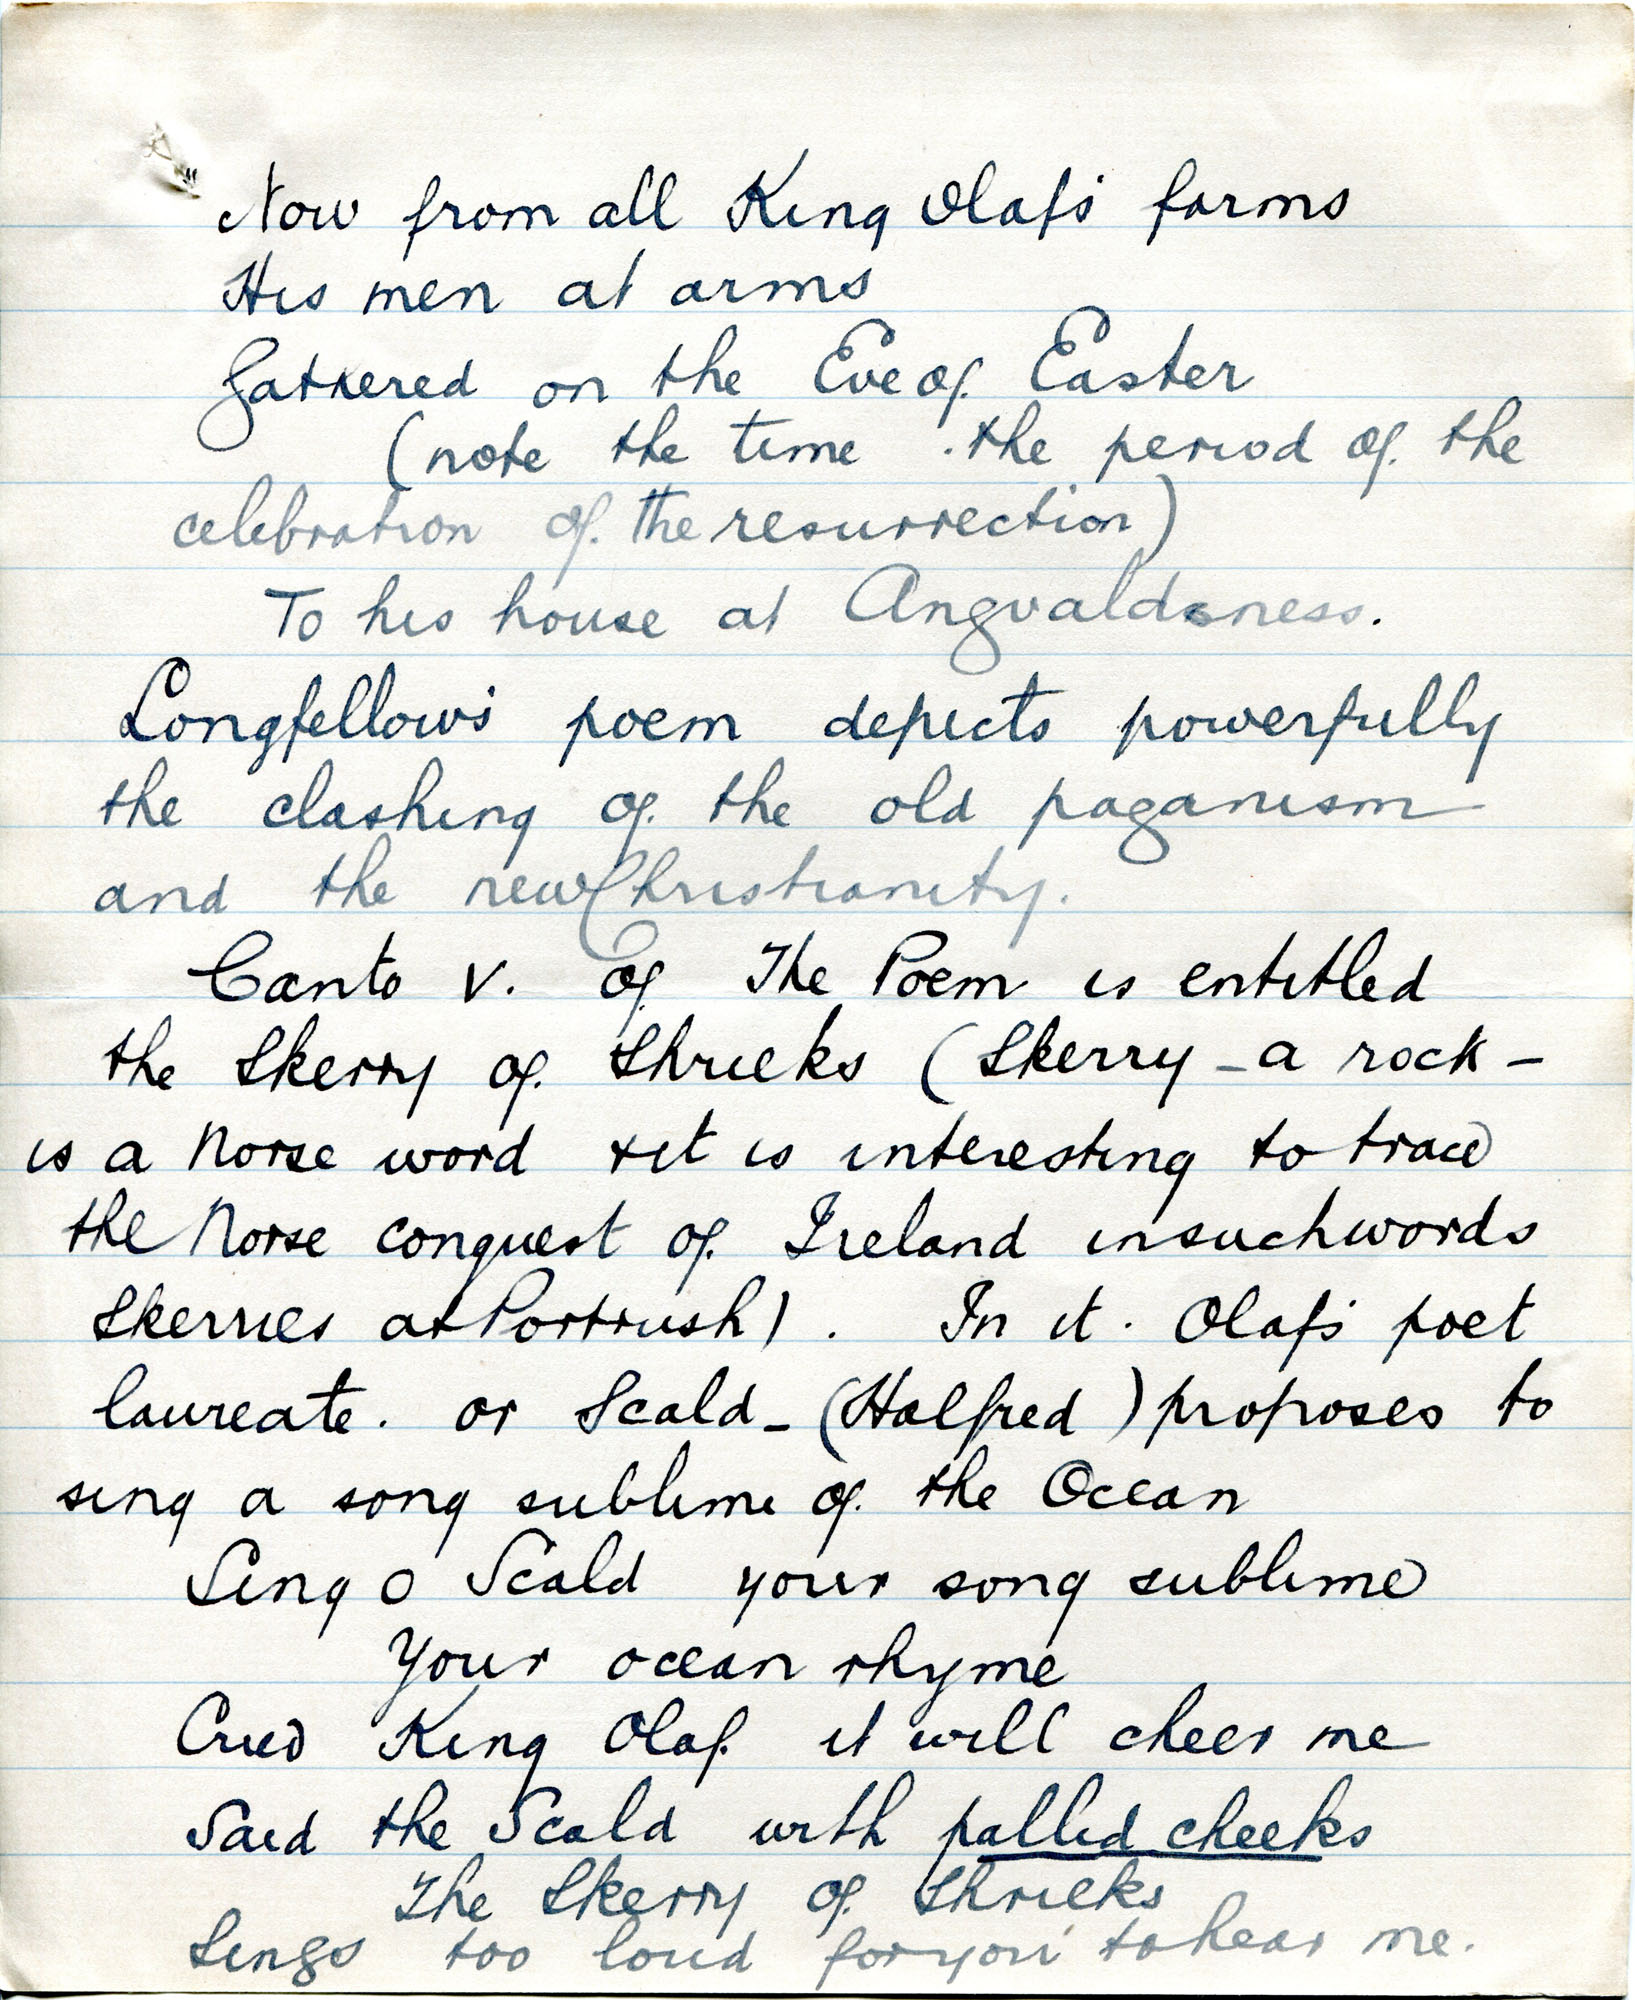 Now from all King Olaf's farms
His men at arms
Gathered on the Eve of Easter
(note the time . the period of the
celebration of the resurrection)
To his house at Angvaldsness.
Longfellow's poem depicts powerfully
the clashing of the old paganism
and the new Christianity.
Canto V. of The Poem is entitled
the Skerry of Shrieks (Skerry - a rock -
is a Norse word + it is interesting to trace
the Norse conquest of Ireland in such words
Skerries at Portrush). In it. Olaf's poet
laureate. or Scald - (Halfred) proposes to
sing a song sublime of the Ocean
Sing O Scald your song sublime
Your ocean rhyme
Cried King Olaf it will cheer me
Said the Scald with pallid cheeks
The Skerry of Shrieks
Sings too loud for you to hear me.